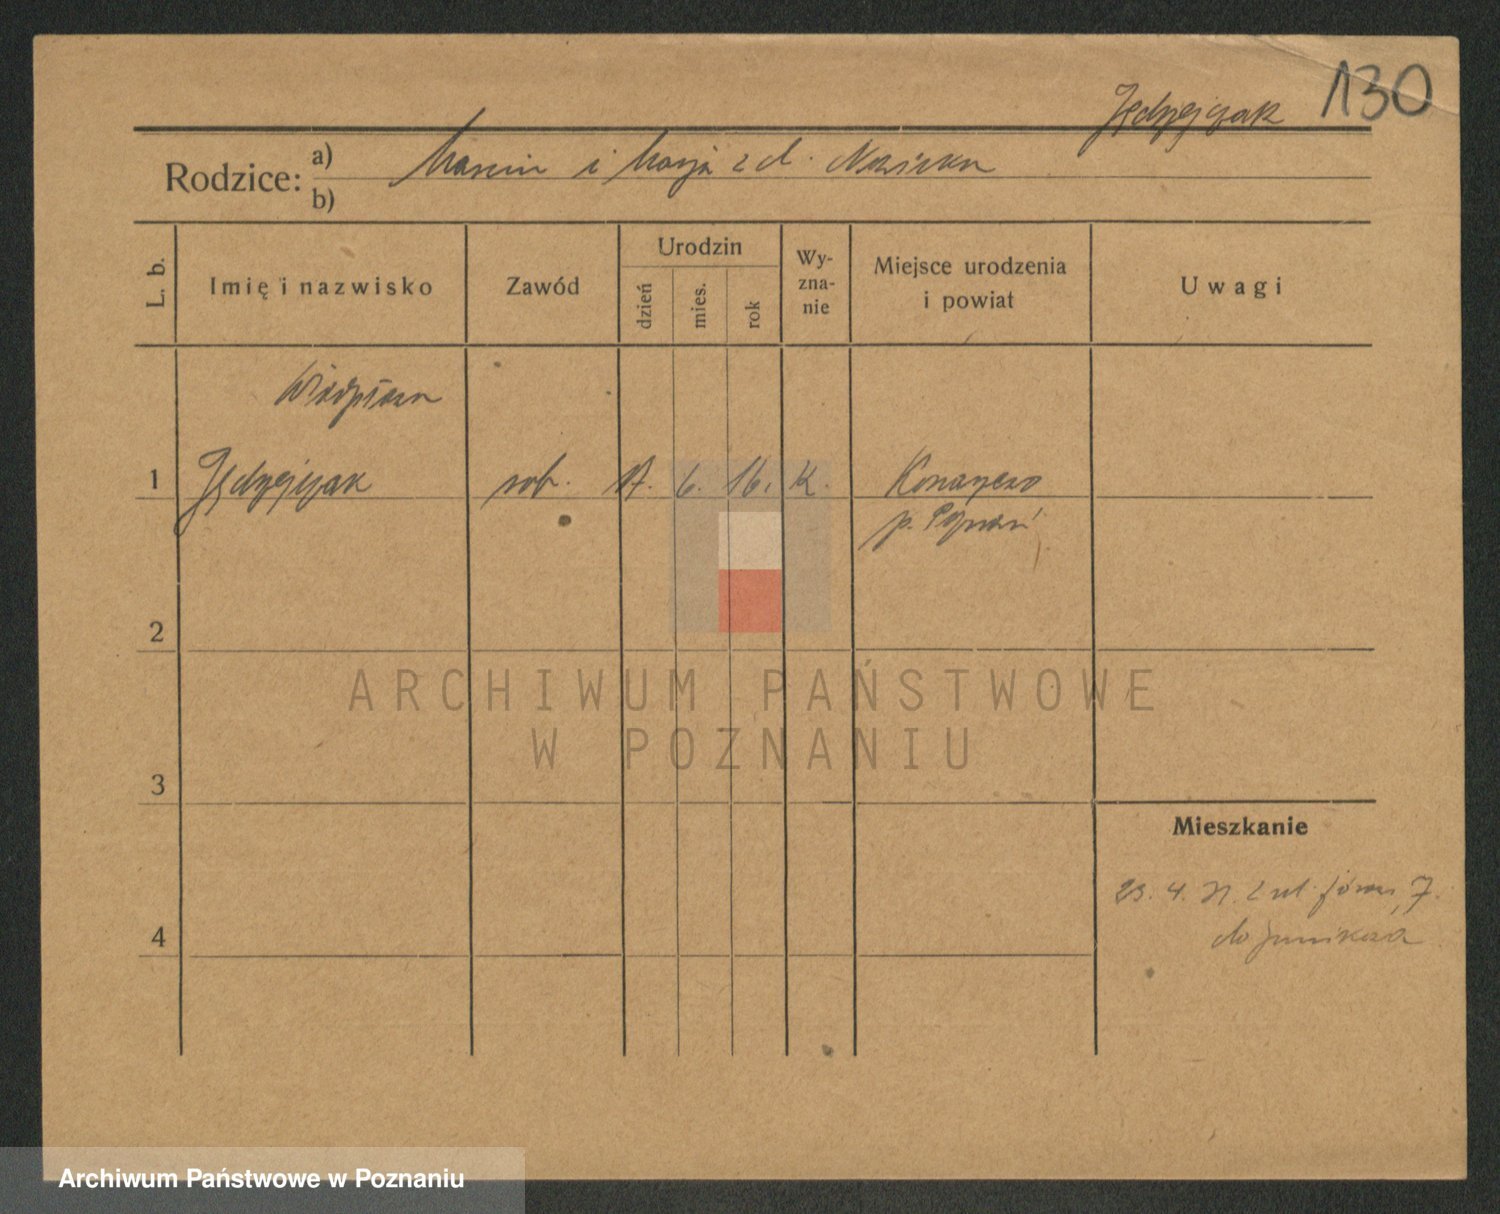 Jędrzejczak 130
Rodzice: a) Marcin i Marja z d.
b)
L. b. Imię i nazwisko Zawód Urodzin dzień mies. rok Wyznanie Miejsce urodzenia i powiat Uwagi
Władysław
1 Jędrzejczak rob. 17. 6. 16. k. Konarzewo
p. Poznań
2
3
4
Mieszkanie
23. 4. z ul. 7.
do Junikowa
ARCHIWUM PAŃSTWOWE
W POZNANIU
Archiwum Państwowe w Poznaniu